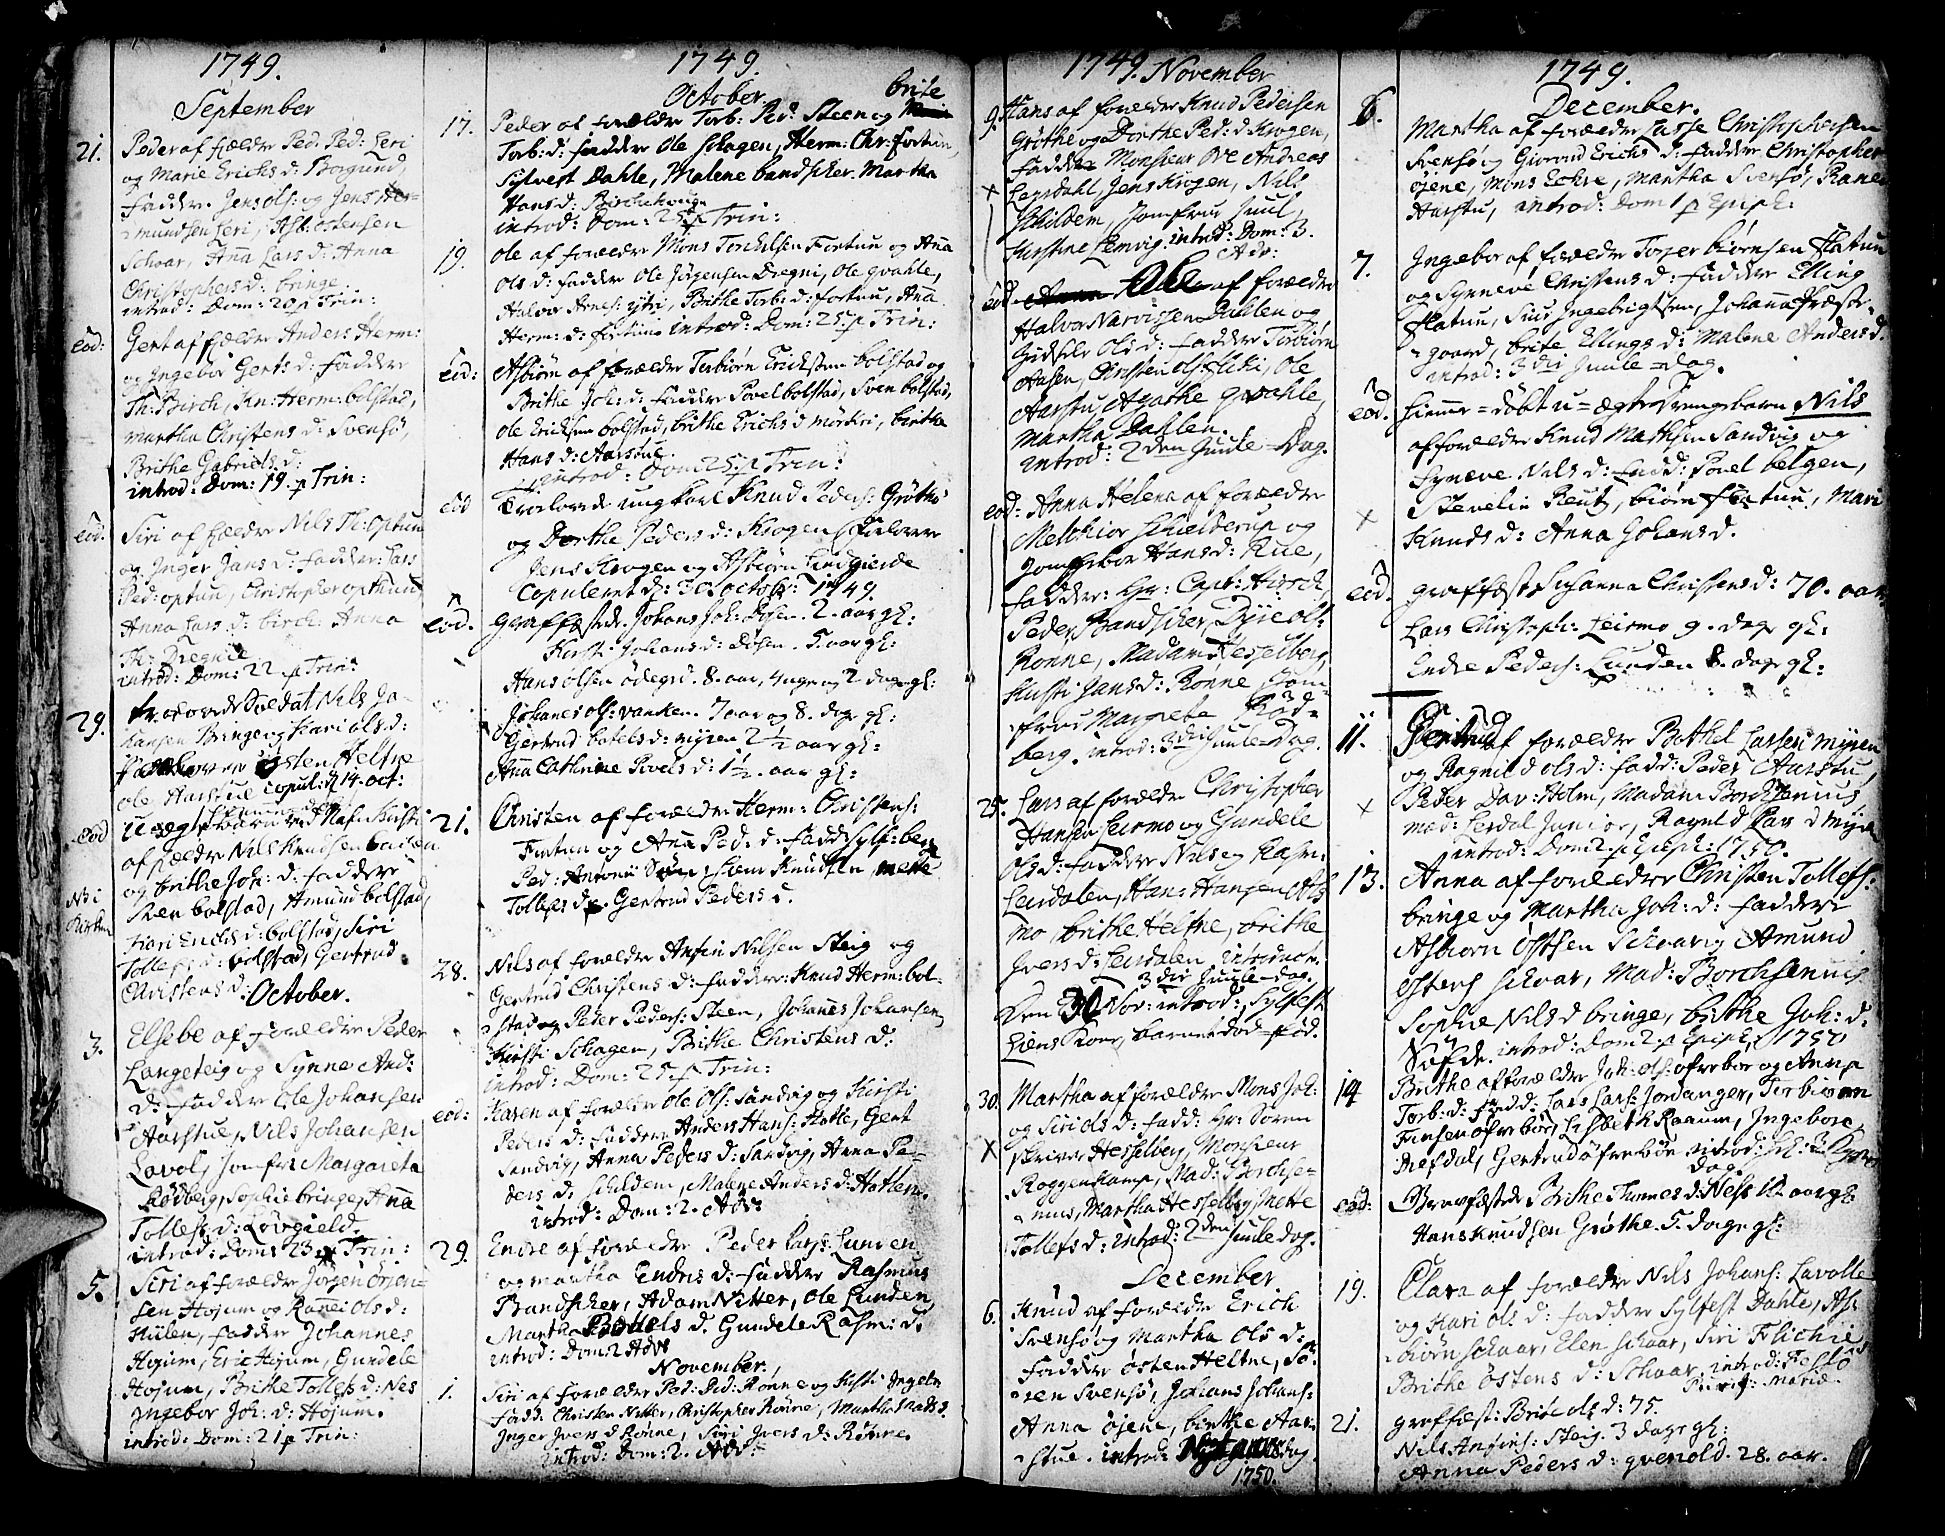 1749.
September
21. Peder af fældre Ped: Ped: Leri
og Marie Erichs d: Borgund,
Fadder. Jens ols: og Jens Her-
mundsen Leri, Asb: ostensen
Schoar, Aña Lars d: Anna
Christophers d: bringe.
introd: Dom: 20 p Trin:
eod: Gert af fældre Anders Herm:
og Ingebor Gerts d: Fadder
Th: Birch, Kn: Herm: bolstad,
Martha Christens d: Svensø,
Brithe Gabriels d:
introd: Dom: 19. p Trin:
eod. Siri af fældre Nils Th: optun
og Inger Jans d: Fadder: Lars
Ped: optun, Christopher opthun
Anna Lars d: birch: Anna
Th: Dregnie
introd: Dom: 22 p Trin:
29. Trolovede Soldat Nils Jo-
hansen Bringe og Kari ols d:
østen Heltne
ole Aarstue copul: d 14. oct:
eod
af fældre Nils Knudsen
og brithe Joh: d: faddere
Sven bolstad, Amund bolstad,
Kari Erichs d: bolstad, Siri
Tollefs d: bolstad, Gertrud
Christens d:
October.
3. Elsebe af forældre Peder
Langeteig og Synne And:
d: fadder Ole Johansen
Aarstue, Nils Johansen
Lavol, Jomfru Margareta
Rødberg, Sophie bringe, Aña
Tollefs d: Løvgield.
introd: Dom: 23 p Trin:
5. Siri af forældre Jørgen
sen Hojum og Rañei Ols d:
Hülen, fadder Johannes
Hojum, Eric Hojum, Gundele
Hojum, Brithe Tollefs d: Nes
Ingebor Joh: d: Hojum.
introd: Dom: 21 p Trin:
1749.
October.
17. Peder af forældre Torb: Pedr: Steen og brite
Torb: d: fadder Ole Schagen, Herm: Chr: Fortun,
Sylvest Dahle, Malene bandscher. Martha
Hans d: Birchehoug
introd: Dom: 25 p Trin:
19. Ole af forældre Mons Torchelsen Fortun og Aña
Ols d: fadder Ole Jørgensen Dregni, Ole qvahle,
Halvor Arnes: ytri, Brithe Torb: d: fortun, Aña
Herm: d: fortun introd: Dom: 25. p Trin:
eod: Asbiørn af forældre Torbiørn Ericksen bolstad og
Brithe Joh: d: fadder Povel bolstad, Sven bolstad,
Ole Ericksen bolstad, brithe Erichs d mørkri, birthe
Hans d: Aarstue.
introd: Dom: 25 p Trin:
eod Trolovede ungkarl Knud Peders: Grøthe
og Dorthe Peders d: Krogen
Jens Krogen og Asbiørn
Copuleret d: 30 octobr: 1749.
eod. Graffæstede. Johans Joh: Døsen. 2. aar gl:
Kirsti Johans d: Døsen. 5. aar gl:
Hans olsen ødegrd. 8. aar, 4 uger og 2 dage gl:
Johanes ols: vanken. 7 aar og 8. dage gl:
Gertrud botels d: myren 2½ aar gl:
Aña Cathrine Povels d: 1½ aar gl:
21. Christen af forældre Herm: Christens:
Fortun og Aña Ped: d: fadd: Sylf:
Ped: Antonii Søn, Knudsen, Mette
Tollefs d. Gertrud Peders d.
28. Nils af forældre Anfin Nilsen Steig og
Gertrud Christens d: faddere: Knud Herm: bol-
stad og Peter Peders: Steen, Johanes Johansen,
Kirsti Schagen, Brithe Christens d:
introd: Dom: 25. p Trin:
eod: Karen af forældre Ole Ols: Sandvig og Kirsti
Peders d: Faddere Anders Hans: Hatle, Gert
Sandvig, Anna Peders d: Sandvig, Anna Pe-
ders d: Schildem, Malene Anders d: Hatlem.
introd: Dom: 2. Adv:
29. Endre af forældre Peder Lars: Lunden
og martha Endres d: fadder Rasmus
Brandscher, Adam Nitter, Ole Lunden
Martha Bottels d. Gundele Rasm: d:
introd: Dom: 2 Adv:
November.
1. Siri af forældre Ped: Ped: Rønne og Kisti Ingels
Fadd: Christen Nitter, Christopher Rønne, Martha Mads d.
Inger Ivers d Rønne, Siri Ivers d: Rønne.
introd: Dom: 2. Adv:
1749. November
9. Hans af forældre Knud Pedersen
Grøthe og Dorthe Ped: d: Krogen,
Fadder Monsieur Ove Andreas
Leerdahl, Jens Krogen, Nils
Schildem, Jomfrue Juul,
Kirstine Lemvig. introd: Dom: 3.
Adv:
eod. Ole af forældre
Halvor Narvissen Dahlen og
Gidsele Ols d: fadder Torbiørn
Aasen, Christen ols: Fliki, Ole
Aarstu, Agathe qvahle,
Martha Dahlen.
introd: 2 den Juule-Dag.
eod: Anna Helena af forældre
Melchior Schielderup og
Jomf: Hans d: Rue,
fadder: Hr: Capt: Hirsch,
Peder Bandscher,
Rønne, Madame Hesselberg,
Kirsti Jans d: Rønne, Jom-
frue Margrete Rød-
berg. introd: 3 die Juule-Dag.
25. Lars af forældre Christopher
Hansen Leirmo og Gundele
Ols d: fadder Nils og Rasm:
Leirdalen, Han: Hansen
mo, brithe Heltne, brithe
Ivers d: Leirdalen introducer:
3 die Juule-dag.
Den 30 Nov: introd: Sylfest
Liens Kone, barnet død-fød.
30. Martha af forældre Mons Joh:
og Siri ols d: fadd: Hr: Søren
schriver Hesselberg, Monsieur
Roggenkamp, Mad: Borchse-
nius, Martha Hesselberg, Mette
Tollefs d: introd: 2 den Juule dag.
December
6. Knud af forældre Erich
Svensø og Martha Ols d:
Faddere østen Heltne, Sø-
ren Svensø, Johans Johans:
Anna Øjene, birthe Aar-
stue. introd: Nyt aarsdag
1750.
1749.
December.
6. Martha af forældre Lasse Christophersen
Svensø og Giørond Erichs d: fadder Christopher
Øjene, Mons Eckre, Martha Svensø, Ranei
Aarstu, introd: Dom 1 p Epiph:
7. Ingebor af forældre Torger biørnsen Flatun
og Synneve Christens d: fadder Elling
Flatun, Siur Ingebrigtsen, Johaña Præste-
gaard, brite Ellings d: Malene Anders d.
introd: 3 die Juule-dag.
eod. Hieme-døbt u-ægte Drengebarn Nils
af forældre Knud Mathsen Sandvig og
Syneve Nils d: Fadd: Povel belgen,
Stevelin Reutz, biørn Flatun, Mari
Knuds d: Anna Johans d.
eod. Graffæst: Susanna Christens d: 70. aar.
Lars Christoph: Leirmo 9. dage gl:
Endre Peders: Lunden 8. dage gl:
11. Gertrud af forældre Bothel Larsen Myren
og Ragnild Ols d: fadd: Peder Aarstu,
Peder Dav: Holm, Madame Borchsenius
Mad: Lerdal Junior, Ragnild Lars d Myr
introd: Dom 2 p Epiph: 1750.
13. Anna af forældre Christen Tollefs:
bringe og Martha Joh: d: fadder
Asbiørn Østsen Schoar, Amund
Østens Schoar, Mad: Borchsenius
Sophie Nils d bringe, brithe Joh: d:
introd: Dom 2 p Epiph: 1750
14 Brithe af forældre Joh: Ols: ofrebør og Anna
Torb: d: Fadd: Lars Lars: Jordanger, Torbiørn
Finsen ofrebør, Lisbeth Raaum, Ingeborg
Næfdal, Gertrud øfrebøe introd: Hl: 3 Kong:
Dag.
eod: Gravfæstede Brithe Thomes d: Ness 10 aar gl:
Hans Knudsen Grøthe. 5. dage gl:
19. Clara af forældre Nils Johans: Lavolle
og Kari Ols d: faddere Sylfest Dahle, As-
biørn Schaar, Elen Schaar, Siri Flichie
Brithe Østens d: Schaar introd: Festo
Purif: Mariæ
21. Graffæst: Brite Ols d: 75.
Nils Anfins: Steig. 3 dage gl:
Anna Peders d: qvenold. 28. aar.